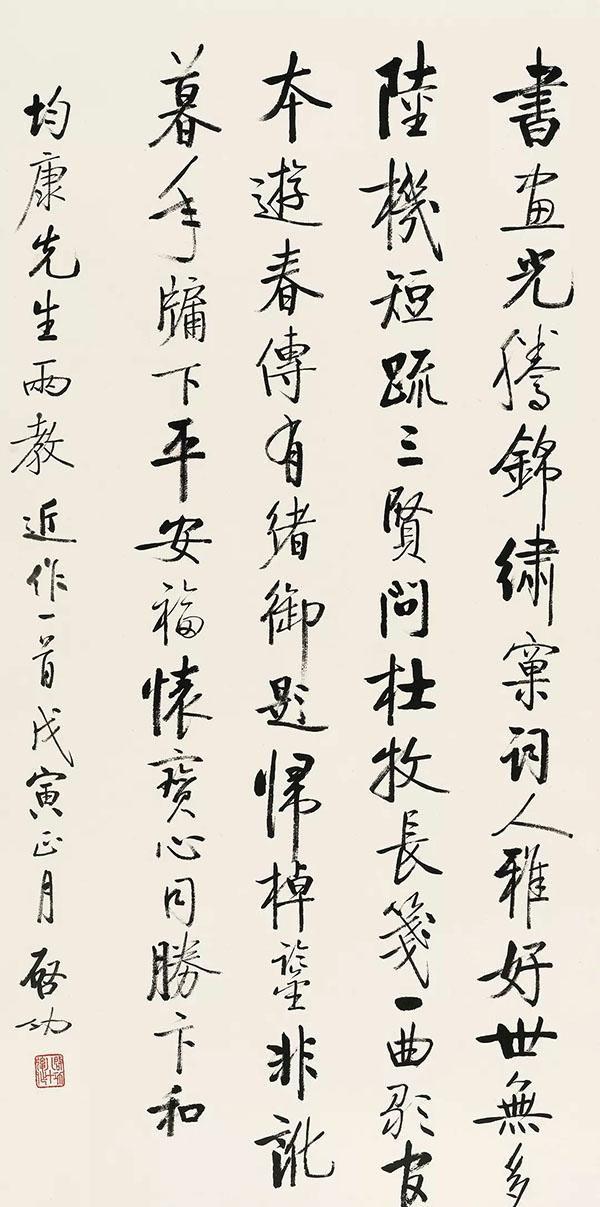 書畫光騰錦繡窠詞人雅好世無多
陸機短疏三賢問杜牧長箋一曲歌官
本遊春傳有緒御題歸棹鑒非訛
暮年牖下平安福懷寶心同勝卞和
均康先生兩教 近作一首戊寅正月 啓功